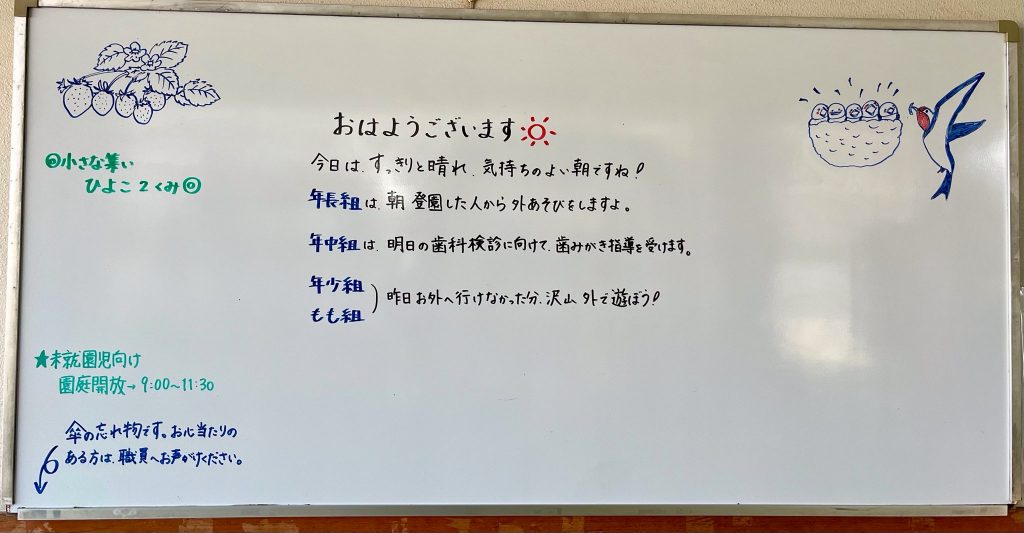 おはようございます
今日は、すっきりと晴れ、気持ちのよい朝ですね！
年長組は、朝登園した人から外あそびをしますよ。
年中組は、明日の歯科検診に向けて、歯みがき指導を受けます。
年少組
もも組
昨日お外へ行けなかった分、沢山外で遊ぼう！
◎小さな集い
ひよこ2くみ◎
★未就園児向け
園庭開放→9:00〜11:30
傘の忘れ物です。お心当たりの
ある方は、職員へお声がけください。